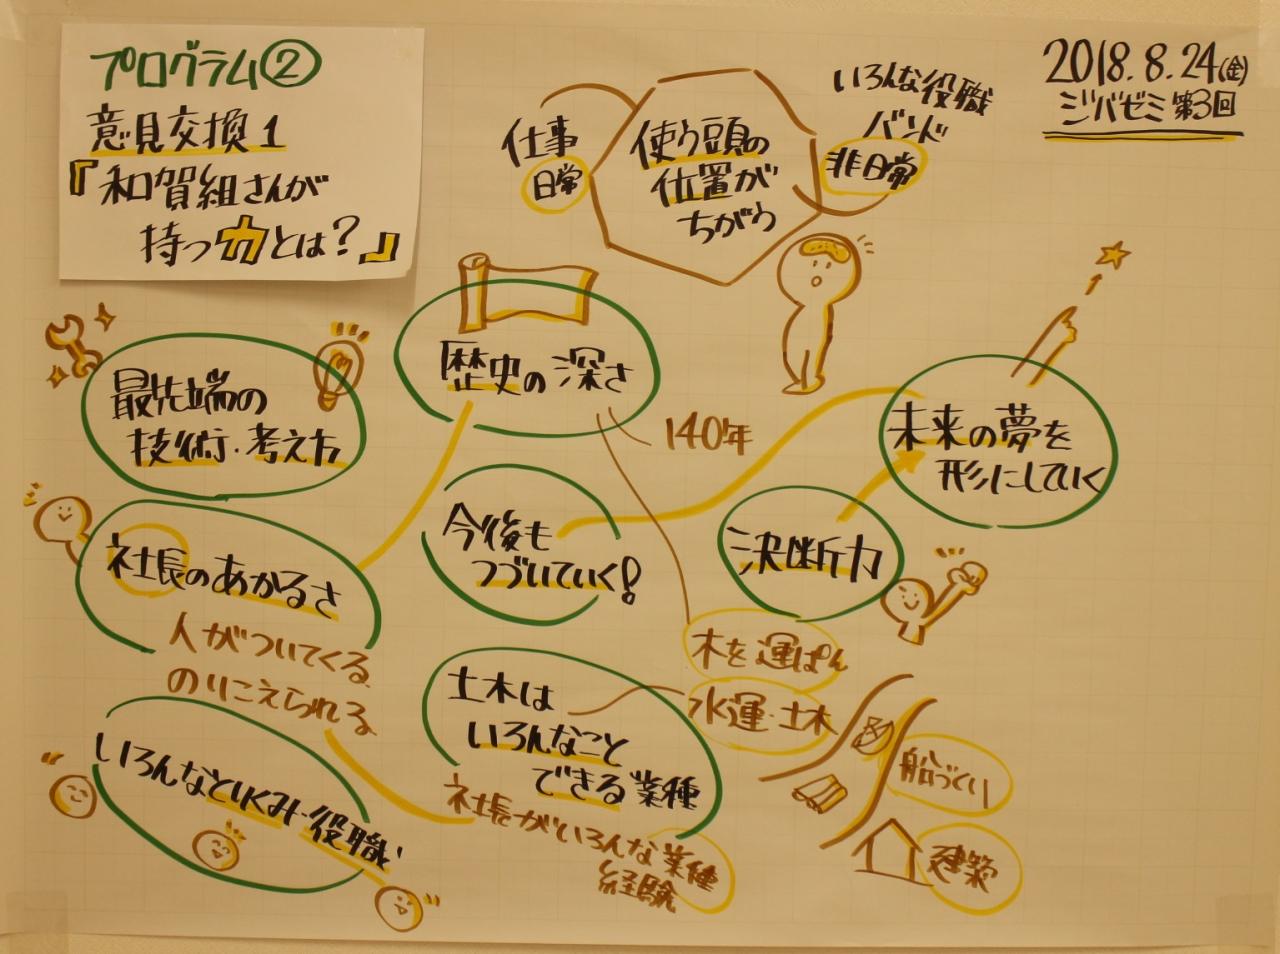 プログラム②
意見交換1
『和賀組さんが
持つ力とは?』
2018.8.24(金)
ジバゼミ第3回
仕事
日常
使う頭の
位置が
ちがう
いろんな役職
バンド
非日常
歴史の深さ
140年
最先端の
技術・考え方
未来の夢を
形にしていく
今後も
つづいていく!
決断力
社長のあかるさ
人がついてくる
のりこえられる
木を運ぱん
水運・土木
土木は
いろんなこと
できる業種
社長がいろんな業種
経験
船づくり
建築
いろんなとりくみ・役職